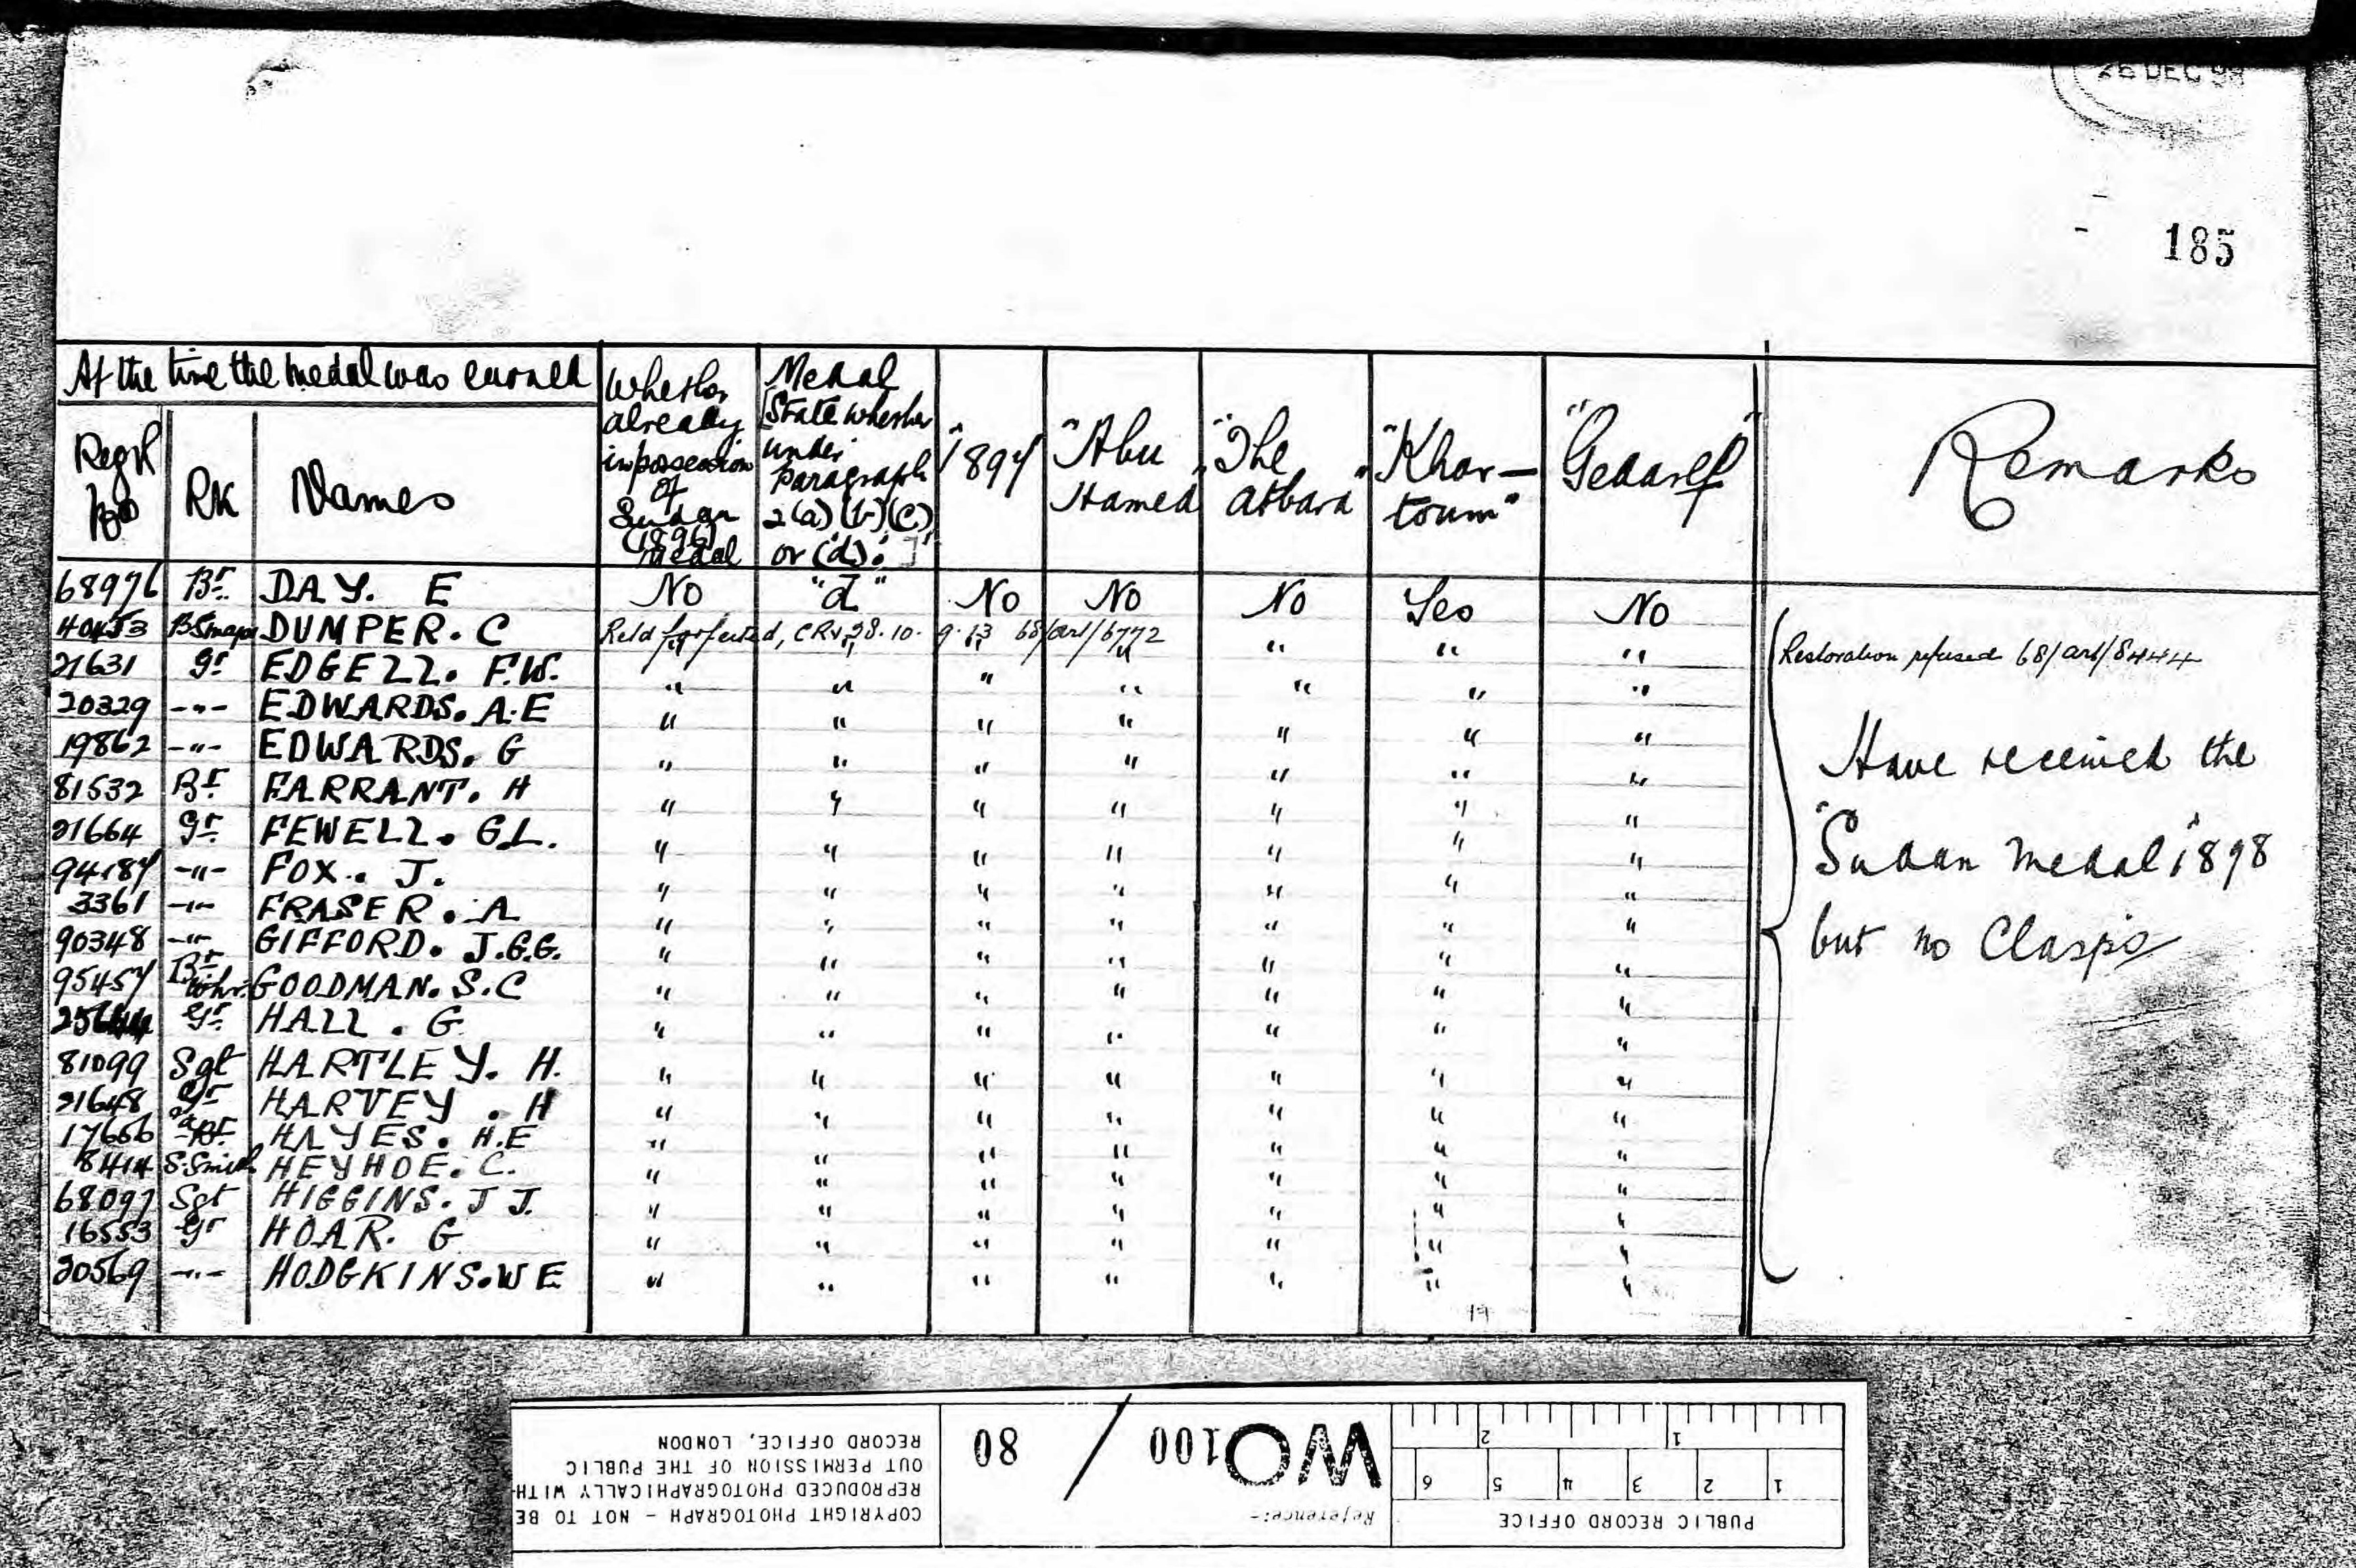 26 DEC 98
185
At the time the medal was earned
Regtl No
RK
Names
Whether already in possession of Sudan (1896) medal
Medal [State whether under paragraph 2(a) (b) (c) or (d).]
"1897"
"Abu Hamed"
"The Atbara"
"Khartoum"
"Gedaref"
Remarks
68976 Br. DAY. E No "d" No No No Yes No
40453 BSmajor DUMPER. C Retd forfeited, CRV, 28.10. 9.13 68/art/6772 " " " Restoration refused 68/art/8444
21631 Gr EDGELL. F.W. " " " " " " "
20329 -"- EDWARDS. A.E " " " " " " "
19862 -"- EDWARDS. G " " " " " " "
81532 Br FARRANT. H " " " " " " "
21664 Gr FEWELL. G.L. " " " " " " "
94187 -"- FOX. J. " " " " " " "
3361 -"- FRASER. A " " " " " " "
90348 -"- GIFFORD. J.G.G. " " " " " " "
95457 Br Whr. GOODMAN. S.C " " " " " " "
Gr HALL. G " " " " " " "
81099 Sgt HARTLEY. H. " " " " " " "
21648 Gr HARVEY. H " " " " " " "
17656 a Br HAYES. H.E " " " " " " "
8414 S.Smith HEYHOE. C. " " " " " " "
68097 Sgt HIGGINS. J J. " " " " " " "
16553 Gr HOAR. G " " " " " " "
20569 -"- HODGKINS. W E " " " " " " "
Have received the
"Sudan Medal" 1898
but no Clasps
19
PUBLIC RECORD OFFICE
1 2 3 4 5 6
1 2
Reference:-
WO 100 / 80
COPYRIGHT PHOTOGRAPH - NOT TO BE
REPRODUCED PHOTOGRAPHICALLY WITH-
OUT PERMISSION OF THE PUBLIC
RECORD OFFICE, LONDON